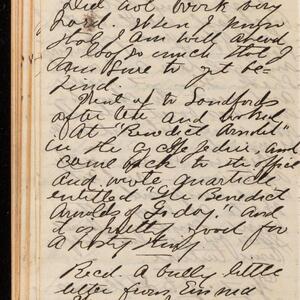 Did not work very
hard. When I know
that I am well ahead
I loaf so much that I
am sure to get be-
hind.
Went up to Sandfords
after tea and looked
at "Benedict Arnold"
in the cyclopedia. And
came back to the office
and wrote an article
entitled "The Benedict
Arnolds of Today." And
it is pretty good for
a
Recd. a bully little
letter from